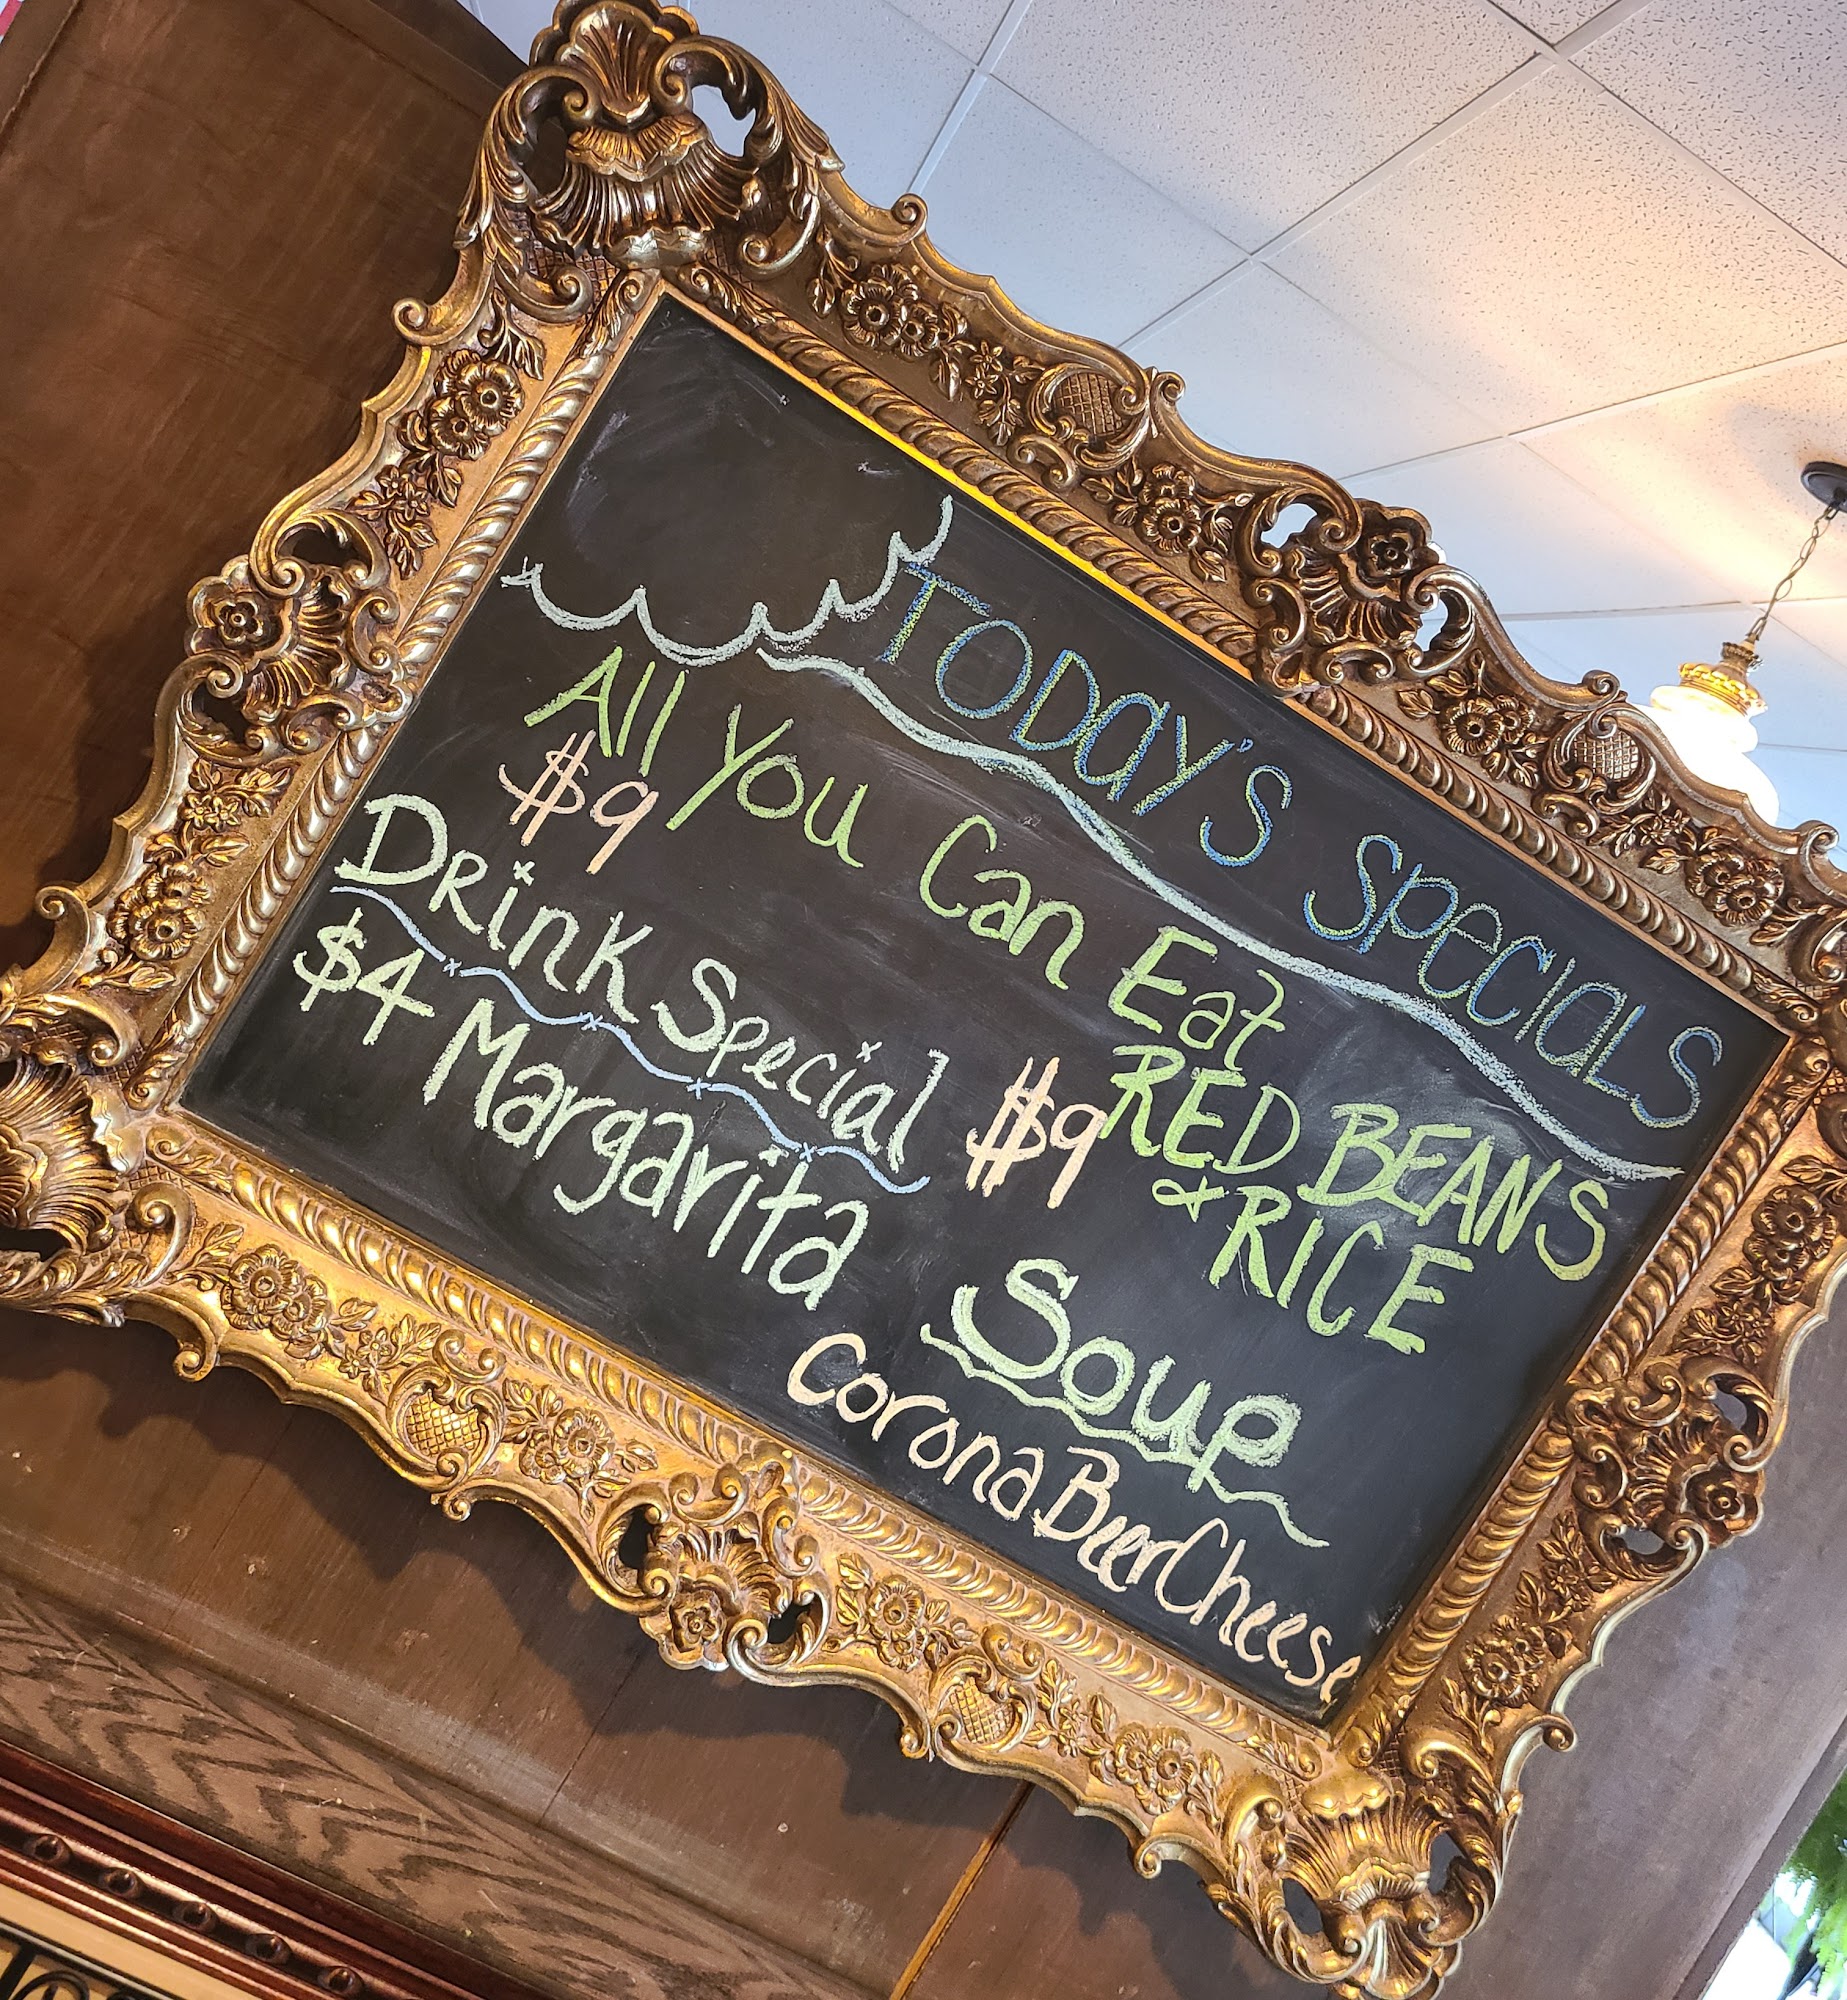 TODAY'S SPECIALS
All You Can Eat
$9
$9 RED BEANS
& RICE
Drink Special
$4 Margarita
Soup
Corona Beer Cheese